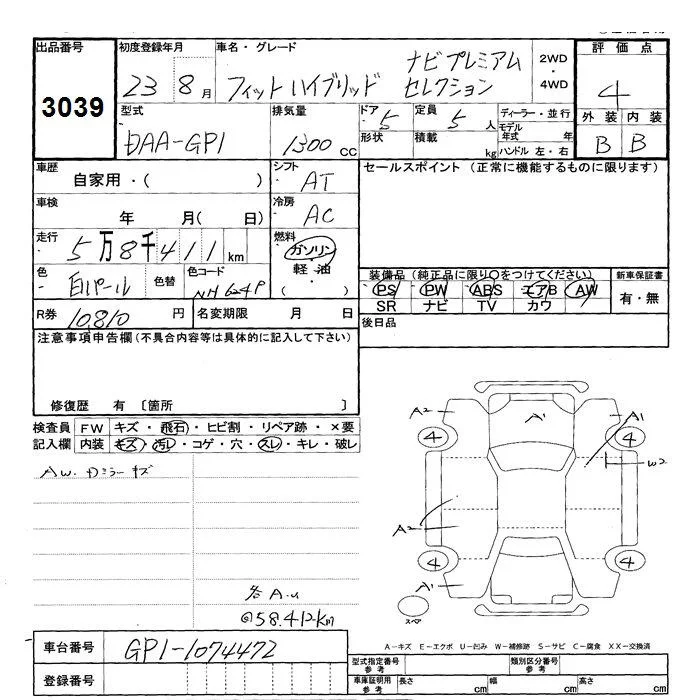 出品番号 初度登録年月 車名・グレード 評価点
3039 23 8月 フィットハイブリッド ナビプレミアム セレクション 2WD・4WD 4
型式 排気量 ドア 5 定員 5人 ディーラー・並行 外装 内装
DAA-GP1 1300cc 形状 積載 kg モデル年式 年 ハンドル 左・右 B B
車歴 自家用・( ) シフト AT セールスポイント (正常に機能するものに限ります)
車検 年 月( 日) 冷房 AC
走行 5万8千411km 燃料 ガソリン・軽油・( )
色 白パール 色替 色コード NH624P
装備品 (純正品に限り○をつけてください) 新車保証書
PS PW ABS エアB AW 有・無
SR ナビ TV カワ
R券 10810円 名変期限 月 日 後日品
注意事項申告欄 (不具合内容等は具体的に記入して下さい)
修復歴 有 〔箇所 〕
検査員 FW キズ・飛石・ヒビ割・リペア跡・×要
記入欄 内装 キズ・汚レ・コゲ・穴・スレ・キレ・破レ
AW. Dミラーキズ
A2 A' A1
4 4
W2
A2
4 4
A'
スペア
各A.u
@58.412km
A-キズ E-エクボ U-凹み W-補修跡 S-サビ C-腐食 XX-交換済
車台番号 GP1-1074472
型式指定番号 参考 類別区分番号 参考
登録番号
車庫証明用 参考 長さ cm 幅 cm 高さ cm